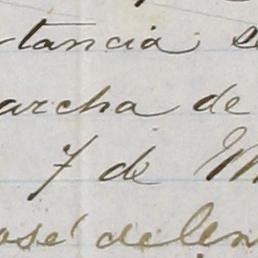 tancia se
archa de
7 de M
osé de len